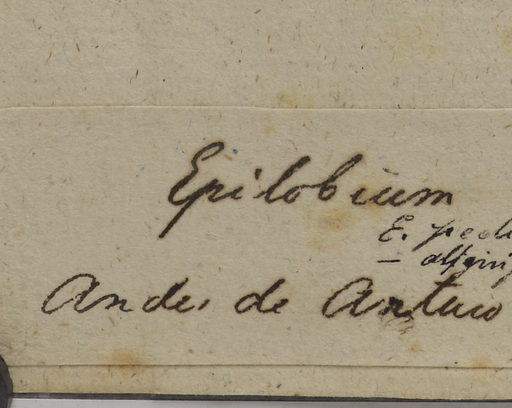 Epilobium
E.
Andes de Antuco